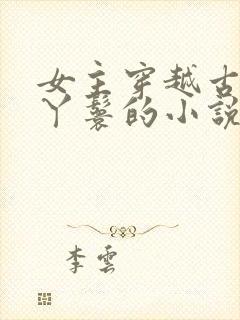 女主穿越古
丫鬟的小說
李雲